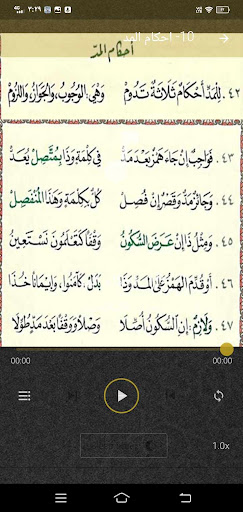 ٣:٢٩
10- احكام المد
أحكام المدّ
٤٢. لِلْمَدِّ أَحْكَامٌ ثَلَاثَةٌ تَدُومْ وَهْيَ: الْوُجُوبُ، وَالْجَوَازُ، وَاللُّزُومْ
٤٣. فَوَاجِبٌ: إِنْ جَاءَ هَمْزٌ بَعْدَ مَدّْ فِي كِلْمَةٍ وَذَا بِمُتَّصِلٍ يُعَدّْ
٤٤. وَجَائِزٌ: مَدٌّ وَقَصْرٌ إِنْ فُصِلْ كُلٌّ بِكِلْمَةٍ وَهَذَا الْمُنْفَصِلْ
٤٥. وَمِثْلُ ذَا إِنْ عَرَضَ السُّكُونُ وَقْفًا كَتَعْلَمُونَ نَسْتَعِينُ
٤٦. أَوْ قُدِّمَ الْهَمْزُ عَلَى الْمَدِّ وَذَا بَدَلْ كَآمَنُوا، وَإِيمَانًا خُذَا
٤٧. وَلَازِمٌ: إِنِ السُّكُونُ أُصِّلَا وَصْلًا وَوَقْفًا بَعْدَ مَدٍّ طُوِّلَا
00:00 00:00
1.0x